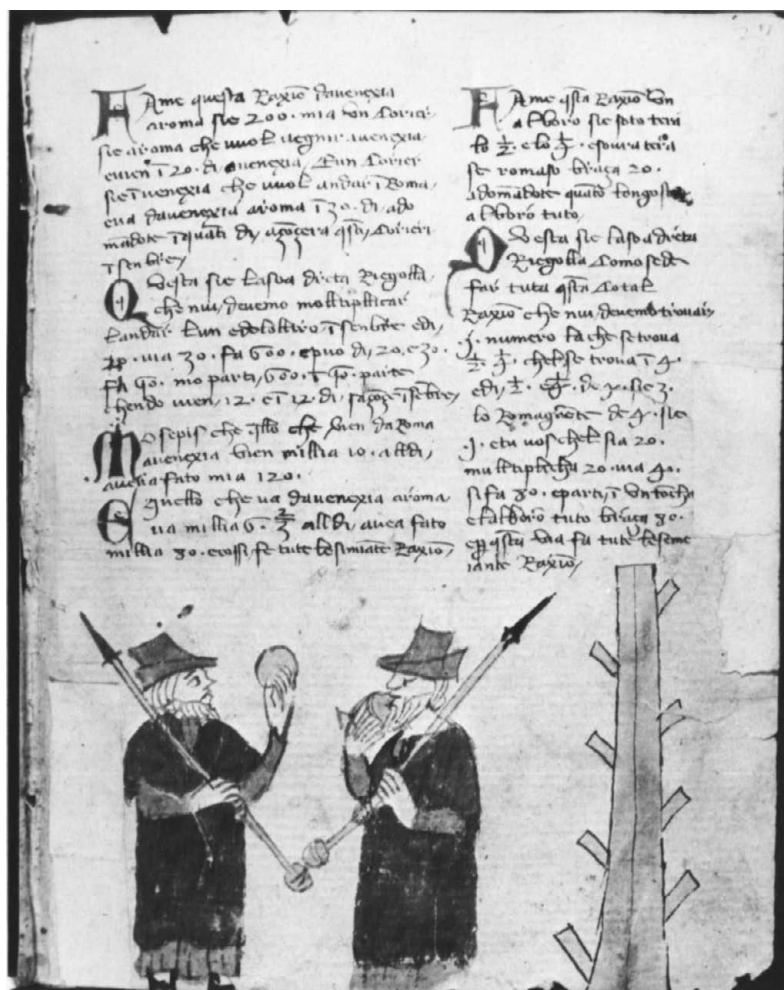 FAme questa Raxiō davenexia
aroma sie 200. mia Vn Corier
sie aroma che vuol vegnir avenexia
e vien ī 20. di. avenexia, Eun Corier
sie ī venexia che vuol andar ī Roma,
eva davenexia aroma ī 30. di. ado
mādote ī quāti di,
īsenbre,
QVesta sie Lasoa dreta Riegolla,
che nui, devemo molltiplicar
Landar Lun edelolltro, ī senbre, edi,
via 30. fa 600. epuo di, 20, e 30.
fa mo parti, 600. ī parte
vien, 12. e ī 12. di, īsēbre,
MO sepis che qllo che, vien da Roma
avenexia vien millia 10. alldi,
averia fato mia 120.
Equello che va davenexia aroma
va millia 6. 2/3 alldi, avea fato
millia 80. e cossi, fe tute le simiāte Raxiō,
FAme qsta Raxiō Vn
alboro sie soto tera
lo 1/2. e lo 1/4. e soura tera
se romaso braça 20.
adomādote quāto Longo
alboro tuto,
QVesta sie Lasoa dreta
Riegolla Como se de
far tuta qsta Cotal
Raxiō che nui, devemo trovar,
j. numero la che se trova
1/2. 1/4. chel se trova ī 4.
edi, 1/2. e 1/4. de 4. sie 3.
lo Romagnēte de 4. sie
1. e tu vos chel sia 20.
multiplicha 20. via 4.
si fa 80. eparti, ī
e lalboro tuto braça 80.
e qsta via fa tute le seme
iante Raxiō,